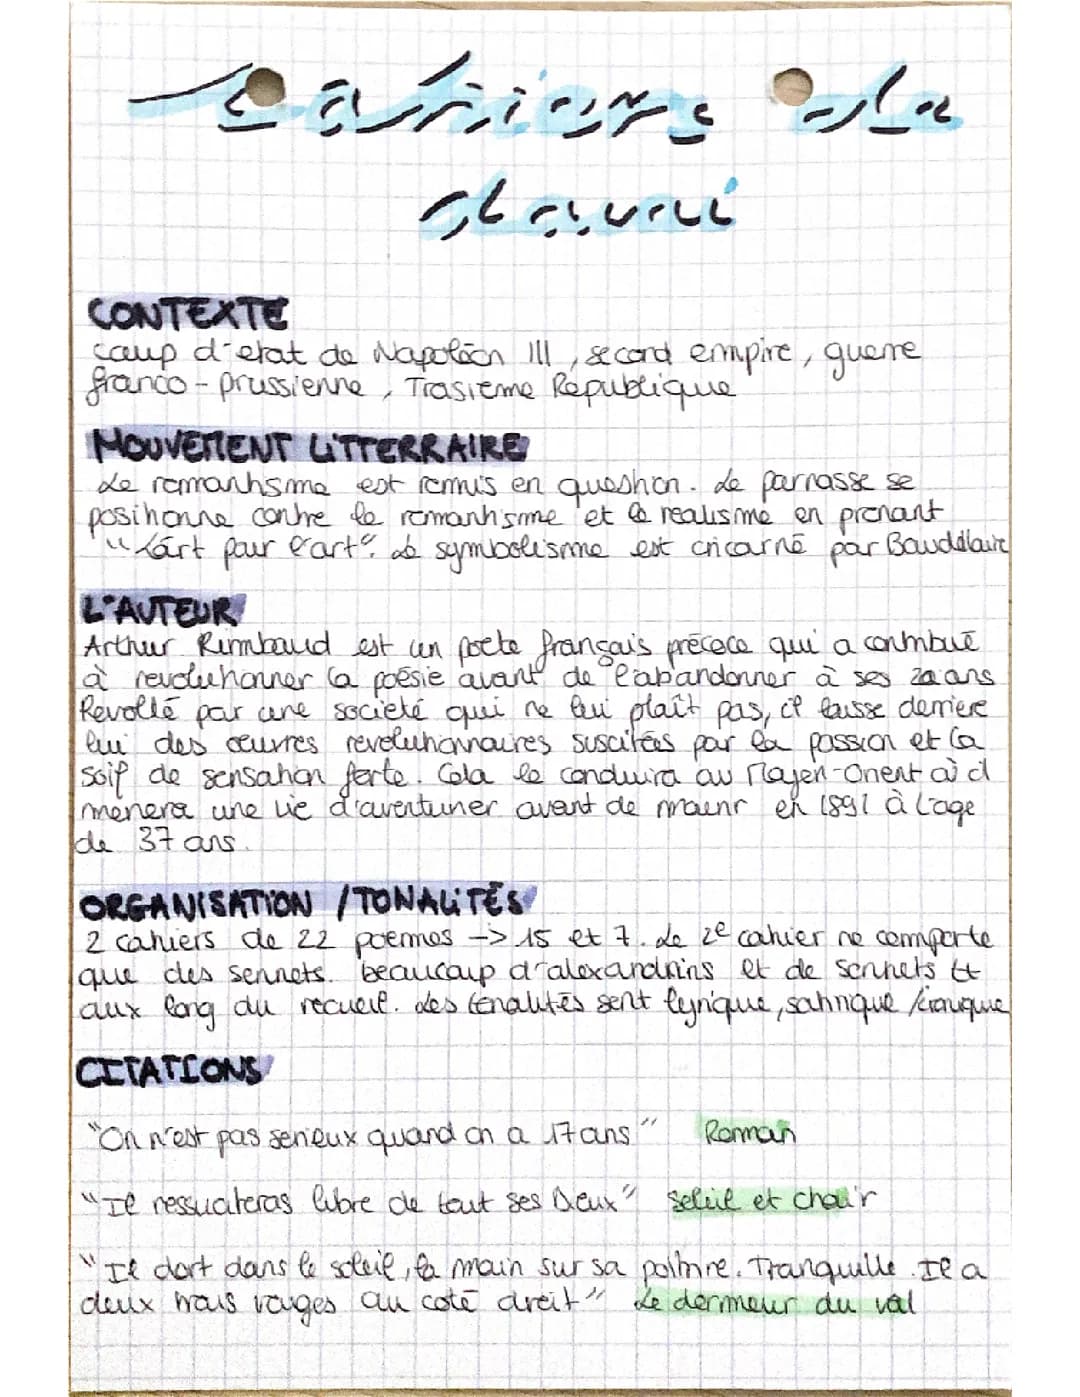 Cahiers de
douai
CONTEXTE
coup d'etat de Napoléon III, second empire, guerre
franco-prussienne, Trosième République
MOUVEMENT LITTERRAIRE
Le romantisme est remis en question. Le parnasse se
positionne contre le romantisme et le realisme en pronant
"L'art pour l'art". Le symbolisme est incarné par Baudelaire
L'AUTEUR
Arthur Rimbaud est un poete français précoce qui a contribué
à revolutionner la poésie avant de l'abandonner à ses 20 ans
Revolté par une societé qui ne lui plaît pas, il laisse derriere
lui des œuvres revolutionnaires suscitées par la passion et la
soif de sensation forte. Cela le conduira au Moyen-Orient où il
menera une vie d'aventurier avant de mourir en 1891 à l'age
de 37 ans.
ORGANISATION / TONALITÉS
2 cahiers de 22 poemes -> 15 et 7. Le 2e cahier ne comporte
que des sonnets. beaucoup d'alexandrins et de sonnets tt
aux long du recueil. Les tonalités sont lyrique, satirique / ironique
CITATIONS
"On n'est pas serieux quand on a 17 ans" Roman
"Il ressuciteras libre de tout ses Dieux" Soleil et chair
"Il dort dans le soleil, la main sur sa poitrine. Tranquille. Il a
deux trous rouges au coté droit" Le dormeur du val